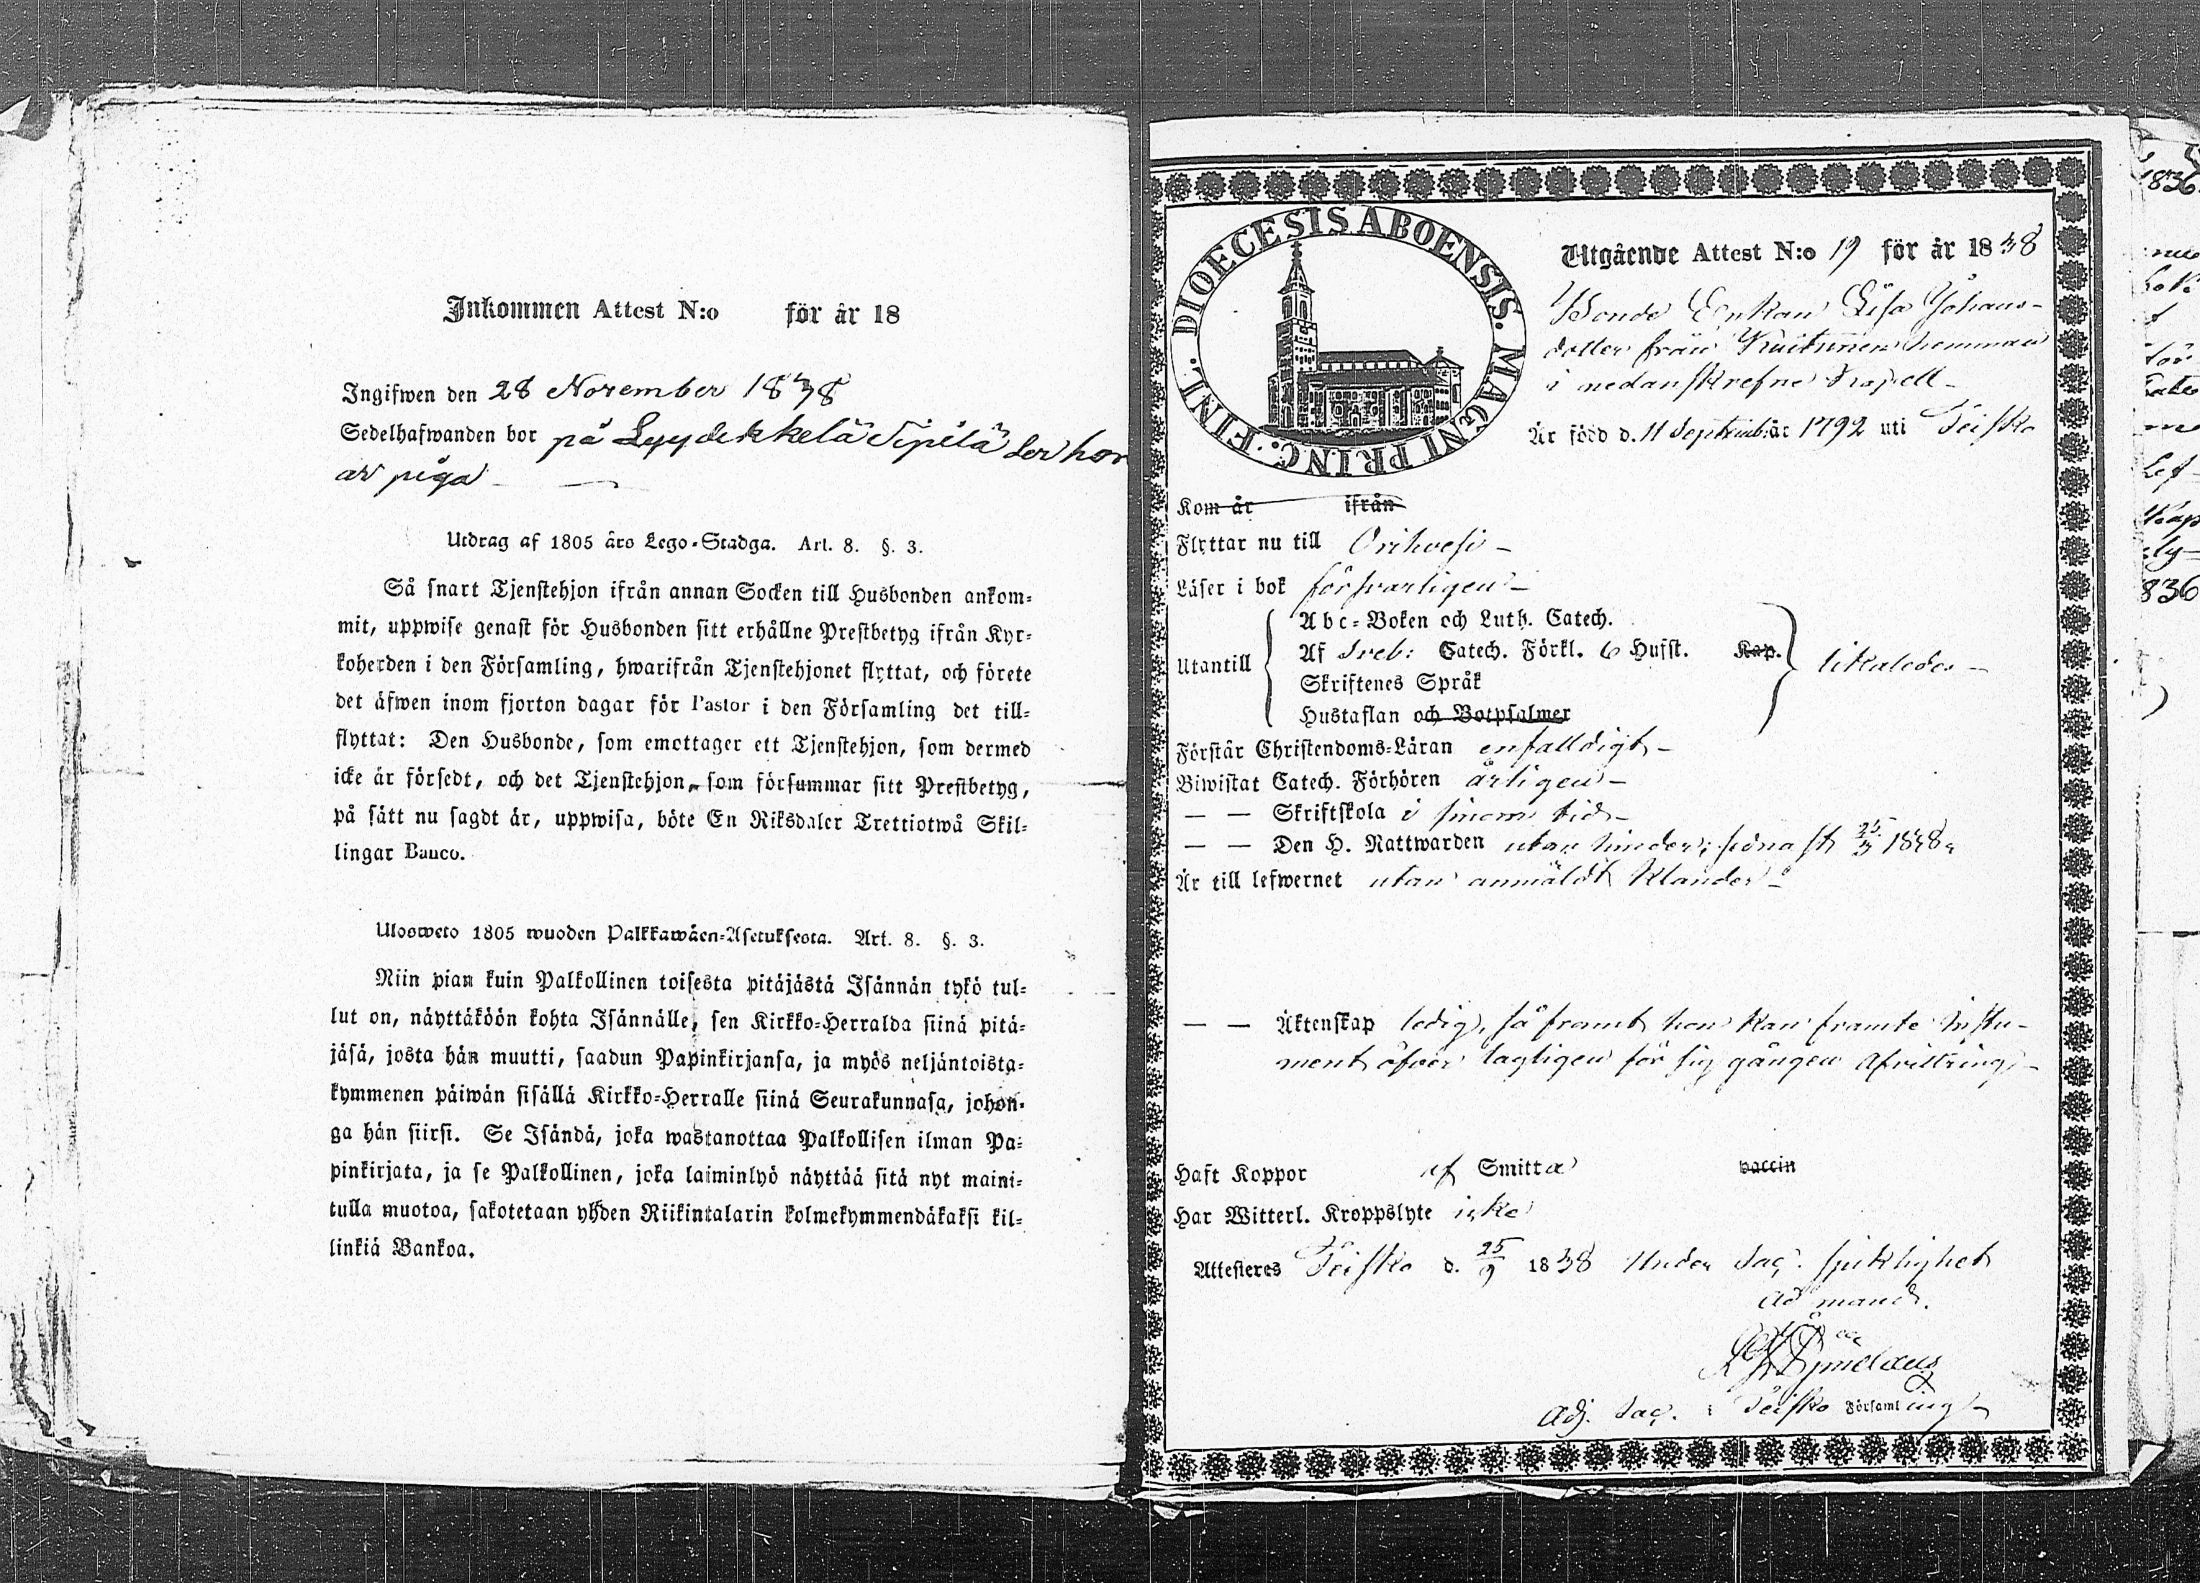 Inkommen Attest N:o för år 18
Ingifwen den 28 November 1838
Sedelhafwanden bor på Lyydikkelä Sipilä der hon
är piga
Utdrag af 1805 års Lego-Stadga. Art. 8. §. 3.
Så snart Tjenstehjon ifrån annan Socken till Husbonden ankom-
mit, uppwise genast för Husbonden sitt erhållne Prestbetyg ifrån Kyr-
koherden i den Församling, hwarifrån Tjenstehjonet flyttat, och förete
det äfwen inom fjorton dagar för Pastor i den Församling det till-
flyttat: Den Husbonde, som emottager ett Tjenstehjon, som dermed
icke är försedt, och det Tjenstehjon, som försummar sitt Prestbetyg,
på sätt nu sagdt är, uppwisa, böte En Riksdaler Trettiotwå Skil-
lingar Banco.
Ulosweto 1805 wuoden Palkkawäen-Asetuksesta. Art. 8. §. 3.
Niin pian kuin Palkollinen toisesta pitäjästä Isännän tykö tul-
lut on, näyttäköön kohta Isännälle, sen Kirkko-Herralda siinä pitä-
jäsä, josta hän muutti, saadun Papinkirjansa, ja myös neljäntoista-
kymmenen päiwän sisällä Kirkko-Herralle siinä Seurakunnasa, johon-
ga hän siirsi. Se Isändä, joka wastanottaa Palkollisen ilman Pa-
pinkirjata, ja se Palkollinen, joka laiminlyö näyttää sitä nyt maini-
tulla muotoa, sakotetaan yhden Riikintalarin kolmekymmendäkaksi kil-
linkiä Bankoa.
DIOECESIS ABOENSIS. MAGNI PRINC. FINL.
Utgående Attest N:o 19 för år 1838
Bonde Enkan Lisa Johans-
dotter från Kuitunen hemman
i nedanskrefne Kapell
Är född d. 11 September år 1792 uti Teisko
Kom år ifrån
Flyttar nu till Orihvesi
Läser i bok försvarligen
Abc-Boken och Luth. Catech.
Utantill Af Sveb: Catech. Förkl. 6 Hufst. Kap. likaledes
Skriftenes Språk
Hustaflan och Botpsalmer
Förstår Christendoms-Läran enfalldigt
Biwistat Catech. Förhören årligen
— — Skriftskola i sinom tid
— — Den H. Nattwarden utan hinder; sednast 25/3 1838
Är till lefwernet utan anmäldt klander
— — Äktenskap ledig, så framt hon kan framte Instru-
ment öfver lagligen för sig gången Afvittring
Haft Koppor af Smitta vaccin
Har Witterl. Kroppslyte icke
Attesteres Teisko d. 25/9 1838 Under Sac. sjuklighet
Ad mand.
Adj. Sac. i Teisko Församling
1836
836